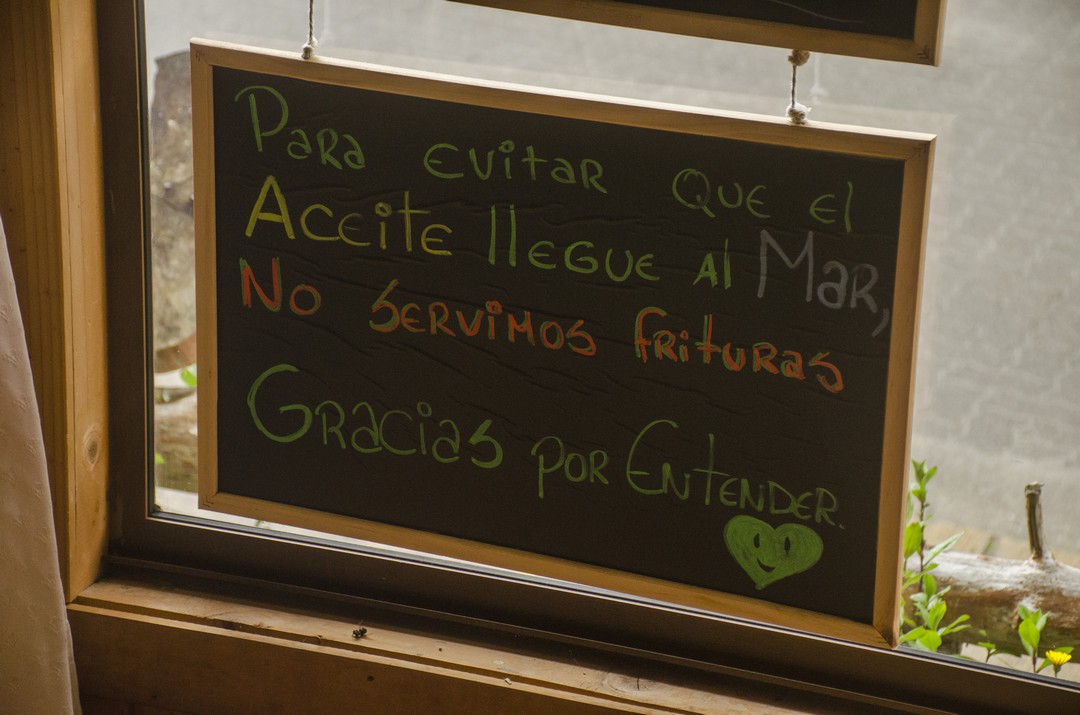 Para evitar que el
Aceite llegue al Mar,
No servimos frituras
Gracias por Entender.